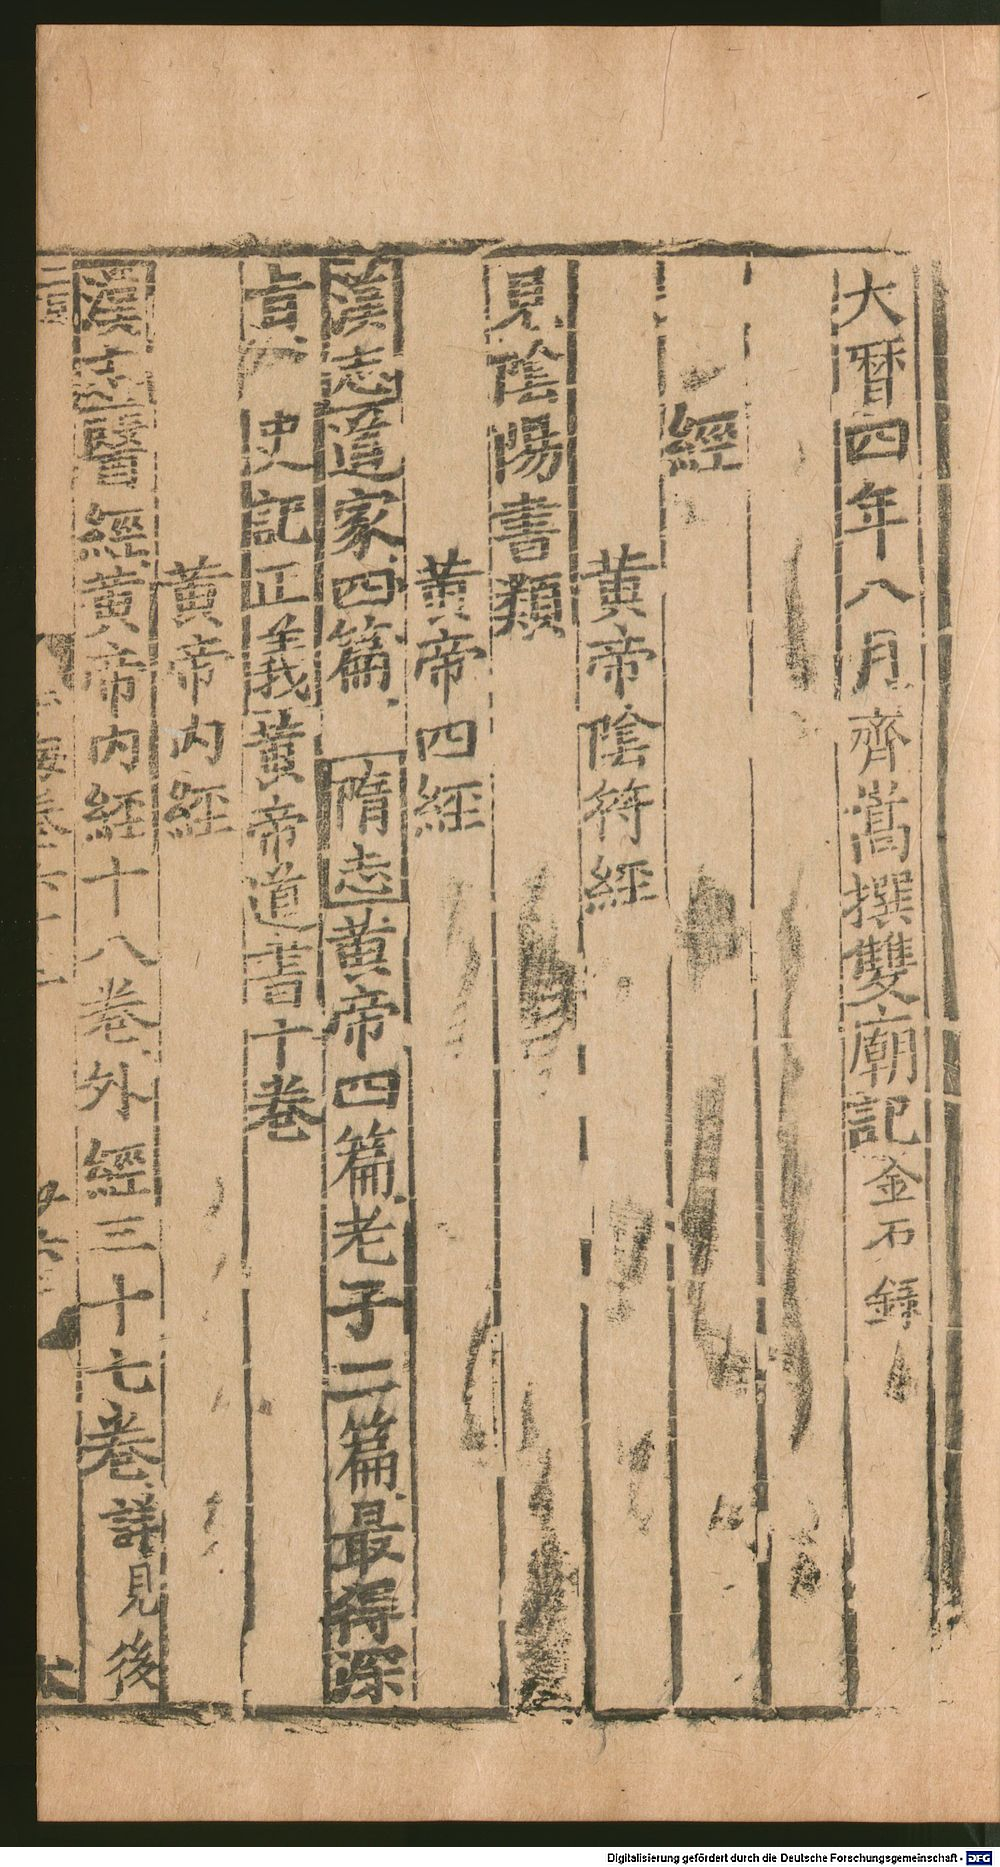 大暦四年八月齊嵩撰雙廟記金石錄
經
黃帝陰符經
見陰陽書類
黃帝四經
漢志道家四篇隋志黃帝四篇老子二篇最得深
㫖史記正義黃帝道書十卷
黃帝內經
漢志醫經黃帝內經十八卷外經三十七卷詳見後
Digitalisierung gefördert durch die Deutsche Forschungsgemeinschaft - DFG